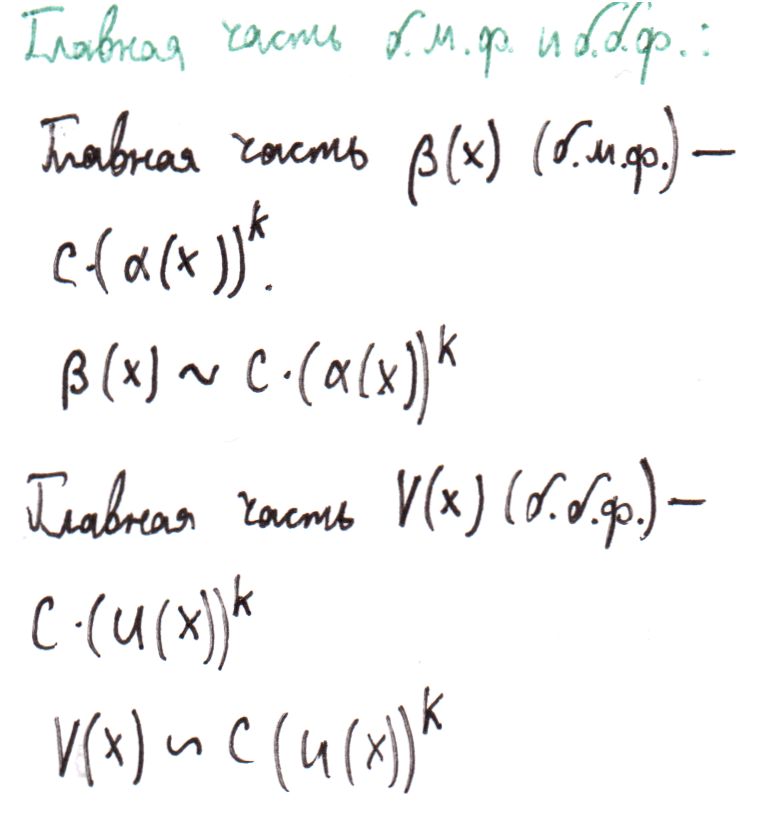 Главная часть б.м.ф. и б.б.ф.:
Главная часть β(x) (б.м.ф.) —
C·(α(x))^k.
β(x) ~ C·(α(x))^k
Главная часть V(x) (б.б.ф.) —
C·(U(x))^k
V(x) ~ C(U(x))^k